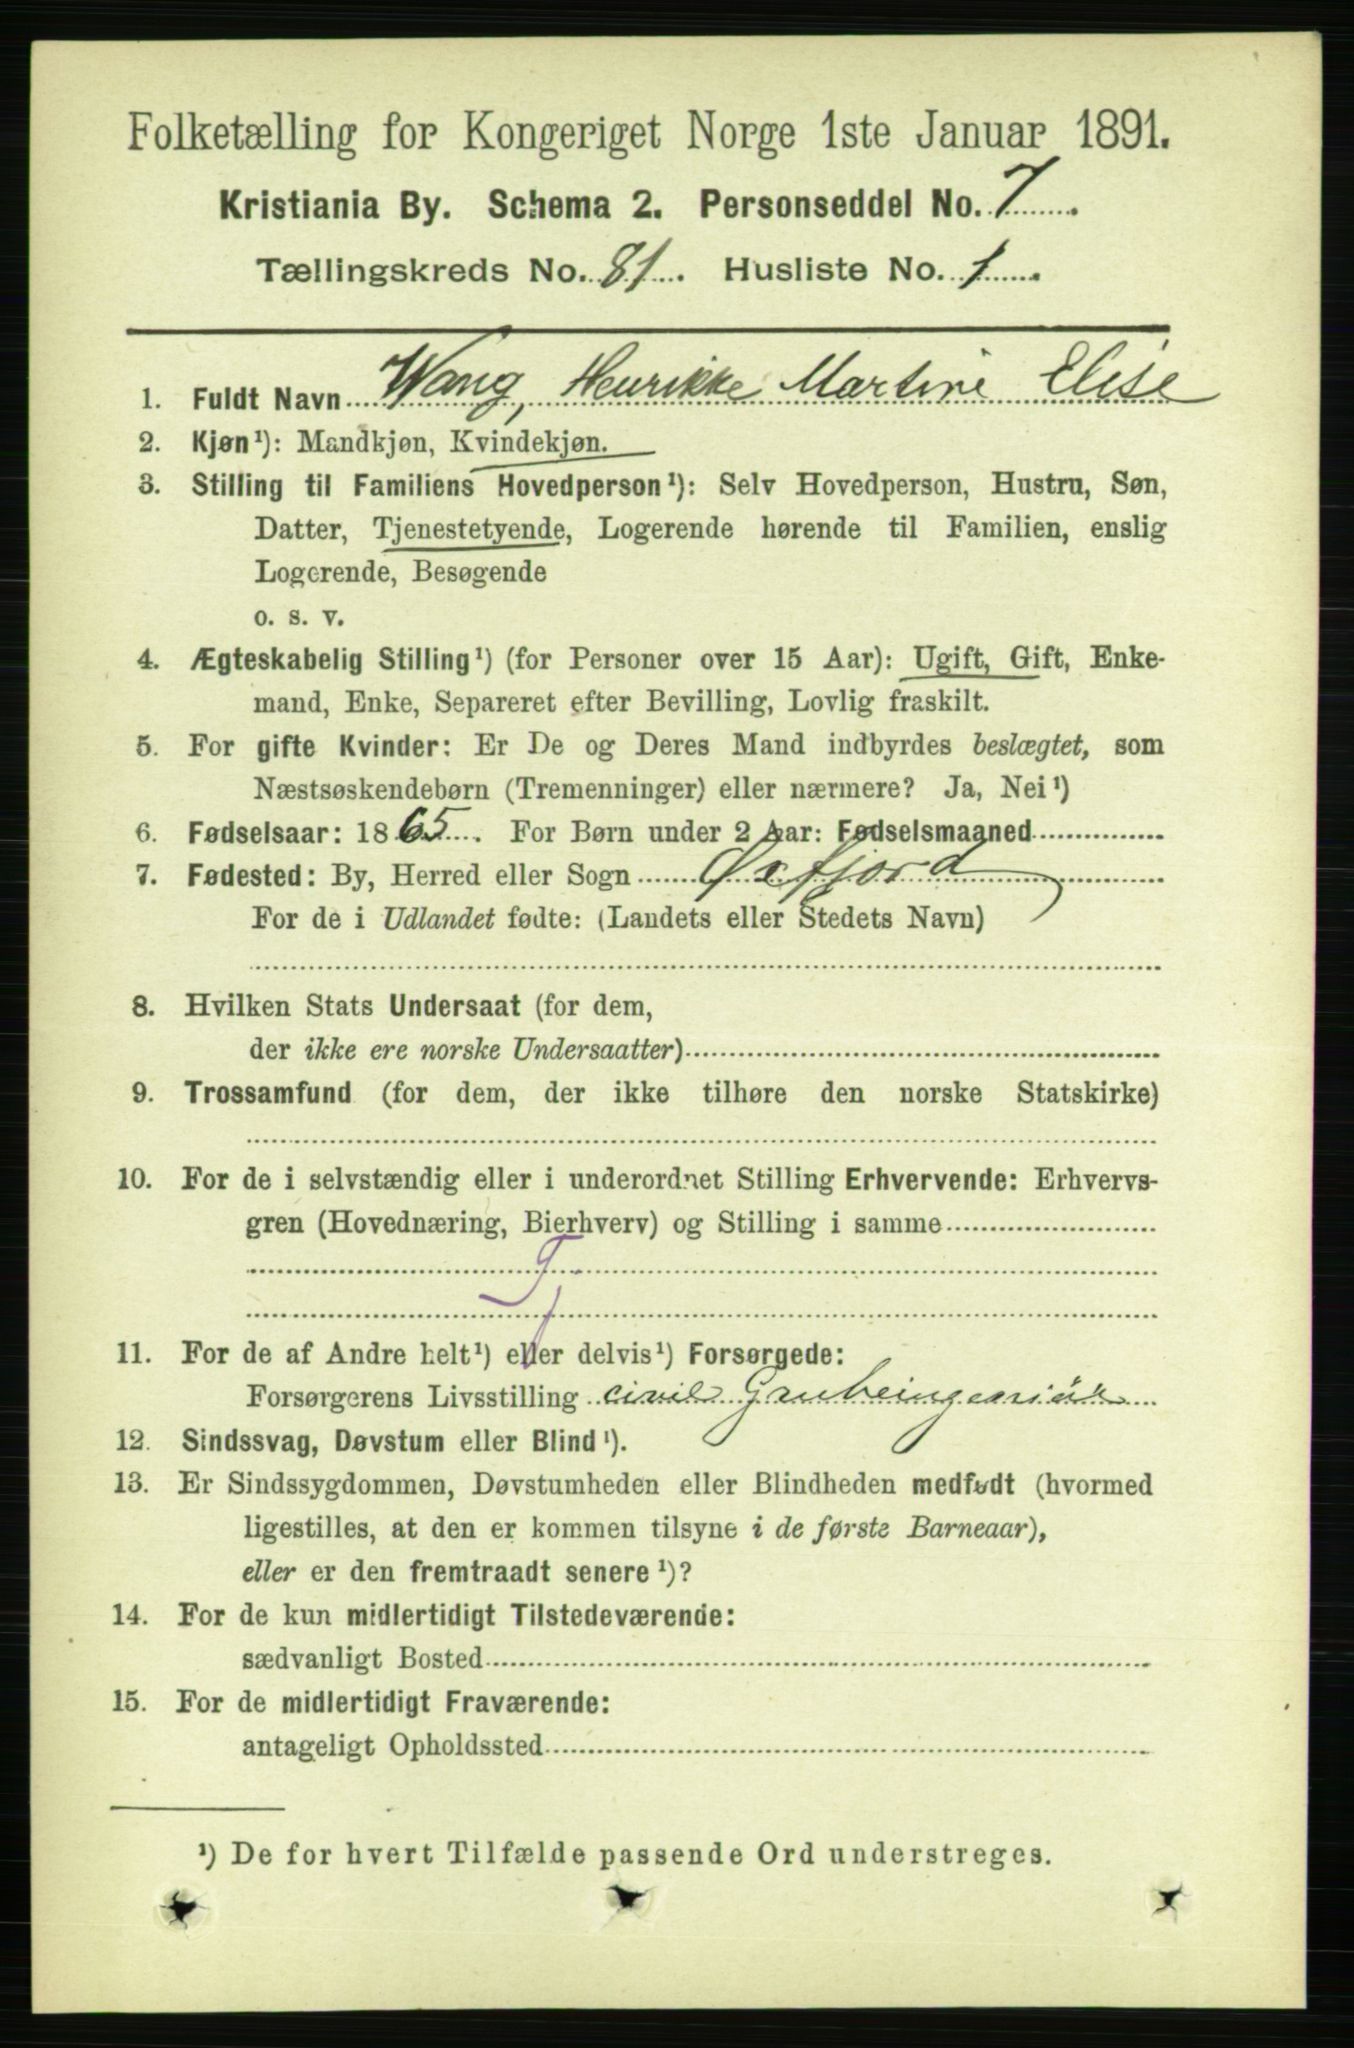 Folketælling for Kongeriget Norge 1ste Januar 1891.
Kristiania By. Schema 2. Personseddel No. 7
Tællingskreds No. 81. Husliste No. 1.
1. Fuldt Navn Wang, Henrikke Martine Elise
2. Kjøn¹): Mandkjøn, Kvindekjøn.
3. Stilling til Familiens Hovedperson¹): Selv Hovedperson, Hustru, Søn,
Datter, Tjenestetyende, Logerende hørende til Familien, enslig
Logerende, Besøgende
o. s. v.
4. Ægteskabelig Stilling¹) (for Personer over 15 Aar): Ugift, Gift, Enke-
mand, Enke, Separeret efter Bevilling, Lovlig fraskilt.
5. For gifte Kvinder: Er De og Deres Mand indbyrdes beslægtet, som
Næstsøskendebørn (Tremenninger) eller nærmere? Ja, Nei¹)
6. Fødselsaar: 1865. For Børn under 2 Aar: Fødselsmaaned
7. Fødested: By, Herred eller Sogn Øxfjord
For de i Udlandet fødte: (Landets eller Stedets Navn)
8. Hvilken Stats Undersaat (for dem,
der ikke ere norske Undersaatter)
9. Trossamfund (for dem, der ikke tilhøre den norske Statskirke)
10. For de i selvstændig eller i underordnet Stilling Erhvervende: Erhvervs-
gren (Hovednæring, Bierhverv) og Stilling i samme
Tj
11. For de af Andre helt¹) eller delvis¹) Forsørgede:
Forsørgerens Livsstilling civil Grubeingeniör
12. Sindssvag, Døvstum eller Blind¹).
13. Er Sindssygdommen, Døvstumheden eller Blindheden medfødt (hvormed
ligestilles, at den er kommen tilsyne i de første Barneaar),
eller er den fremtraadt senere¹)?
14. For de kun midlertidigt Tilstedeværende:
sædvanligt Bosted
15. For de midlertidigt Fraværende:
antageligt Opholdssted
¹) De for hvert Tilfælde passende Ord understreges.